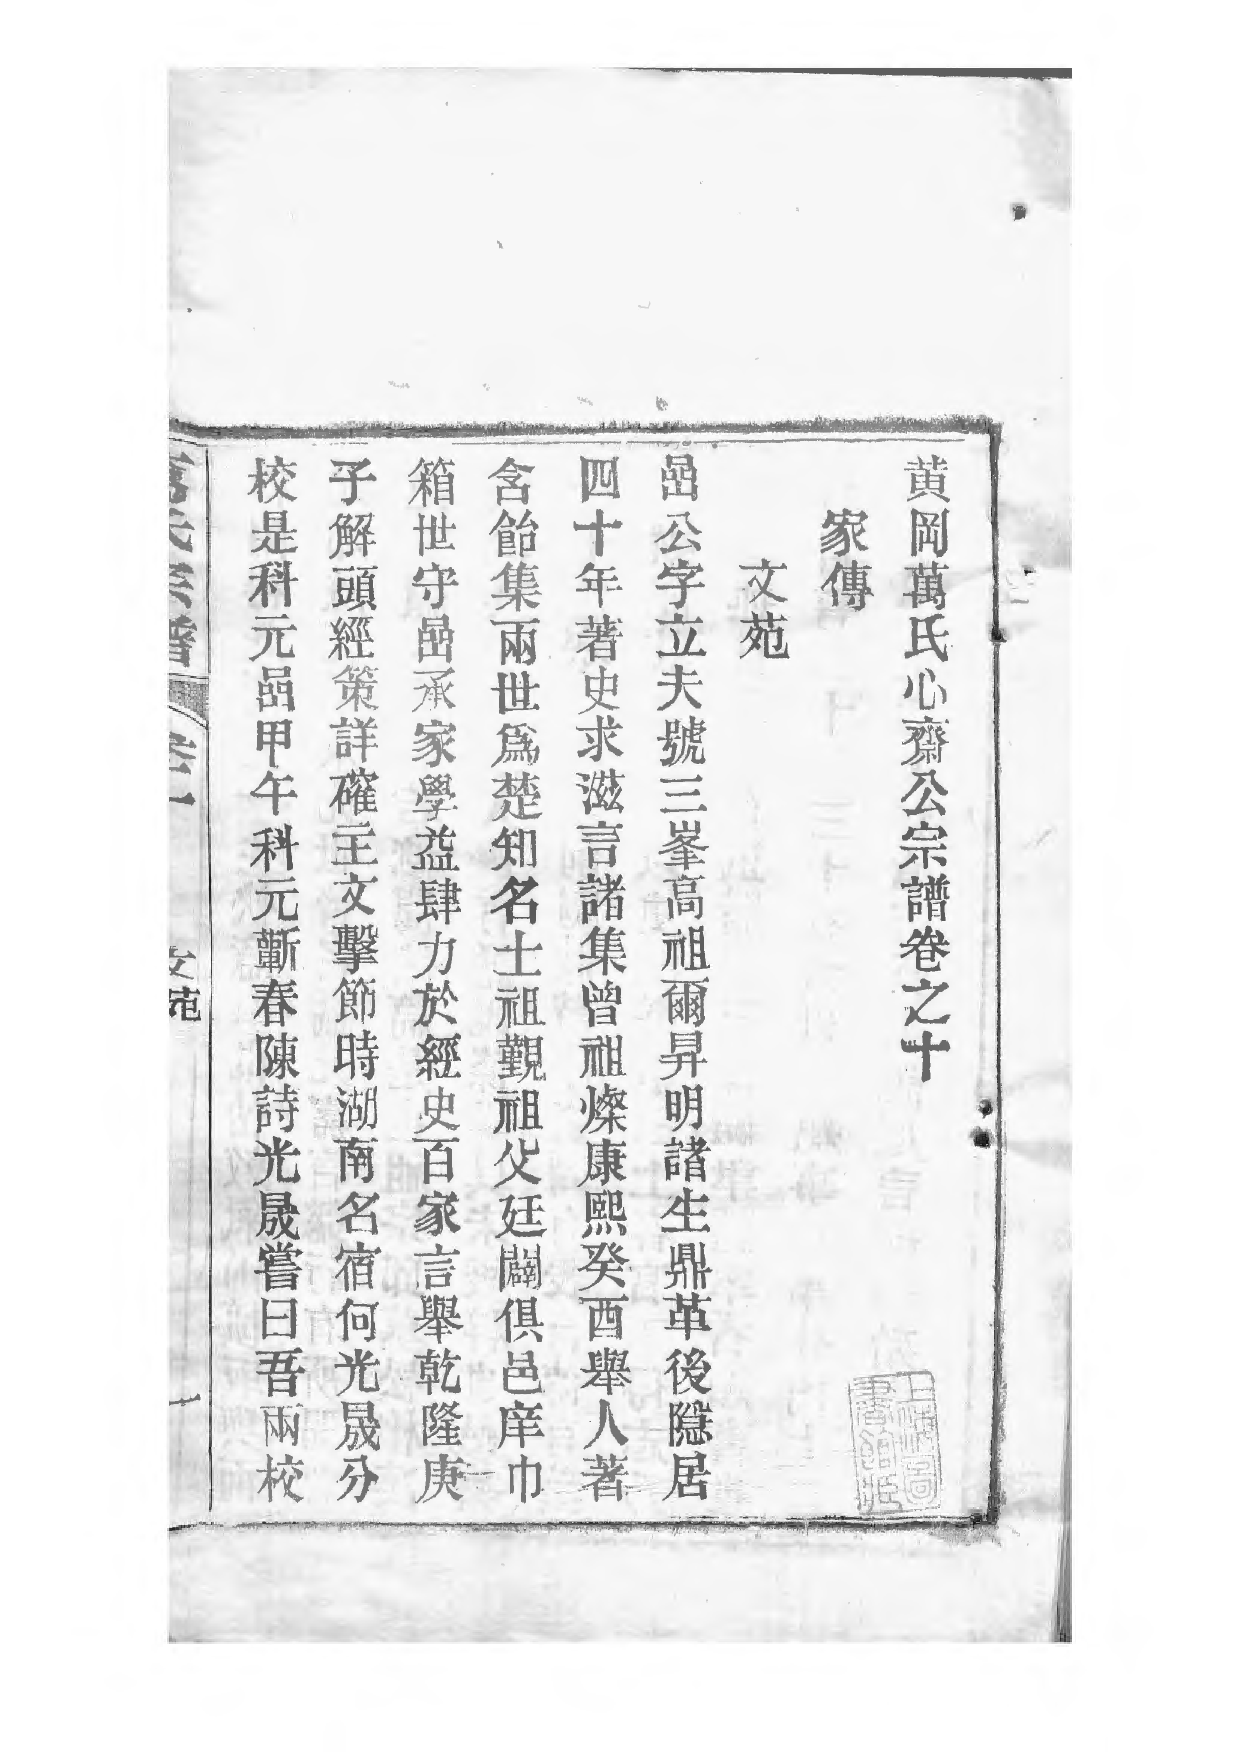 黄岡萬氏心齋公宗譜卷之十
家傳
文苑
嵒公字立夫號三峯高祖爾昇明諸生鼎革後隱居
四十年著史求滋言諸集曾祖燦康熙癸酉舉人著
含飴集兩世爲楚知名士祖觀祖父廷闢俱邑庠巾
箱世守嵒承家學益肆力於經史百家言舉乾隆庚
子解頭經策詳確主文擊節時湖南名宿何光晟分
校是科元嵒甲午科元蘄春陳詩光晟嘗曰吾兩校
萬氏宗譜
文苑
一
上海圖書館藏